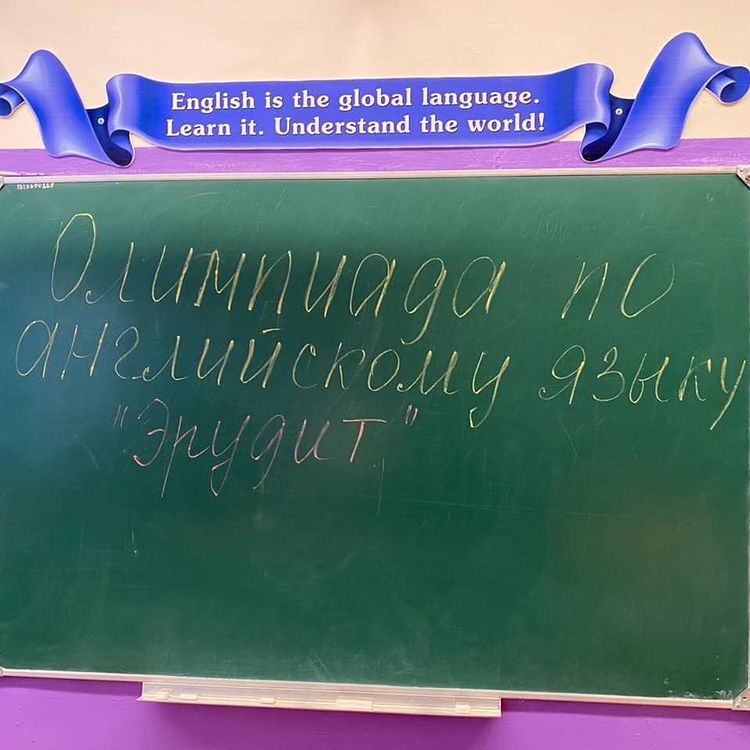 English is the global language.
Learn it. Understand the world!
Олимпиада по
английскому языку
"Эрудит"